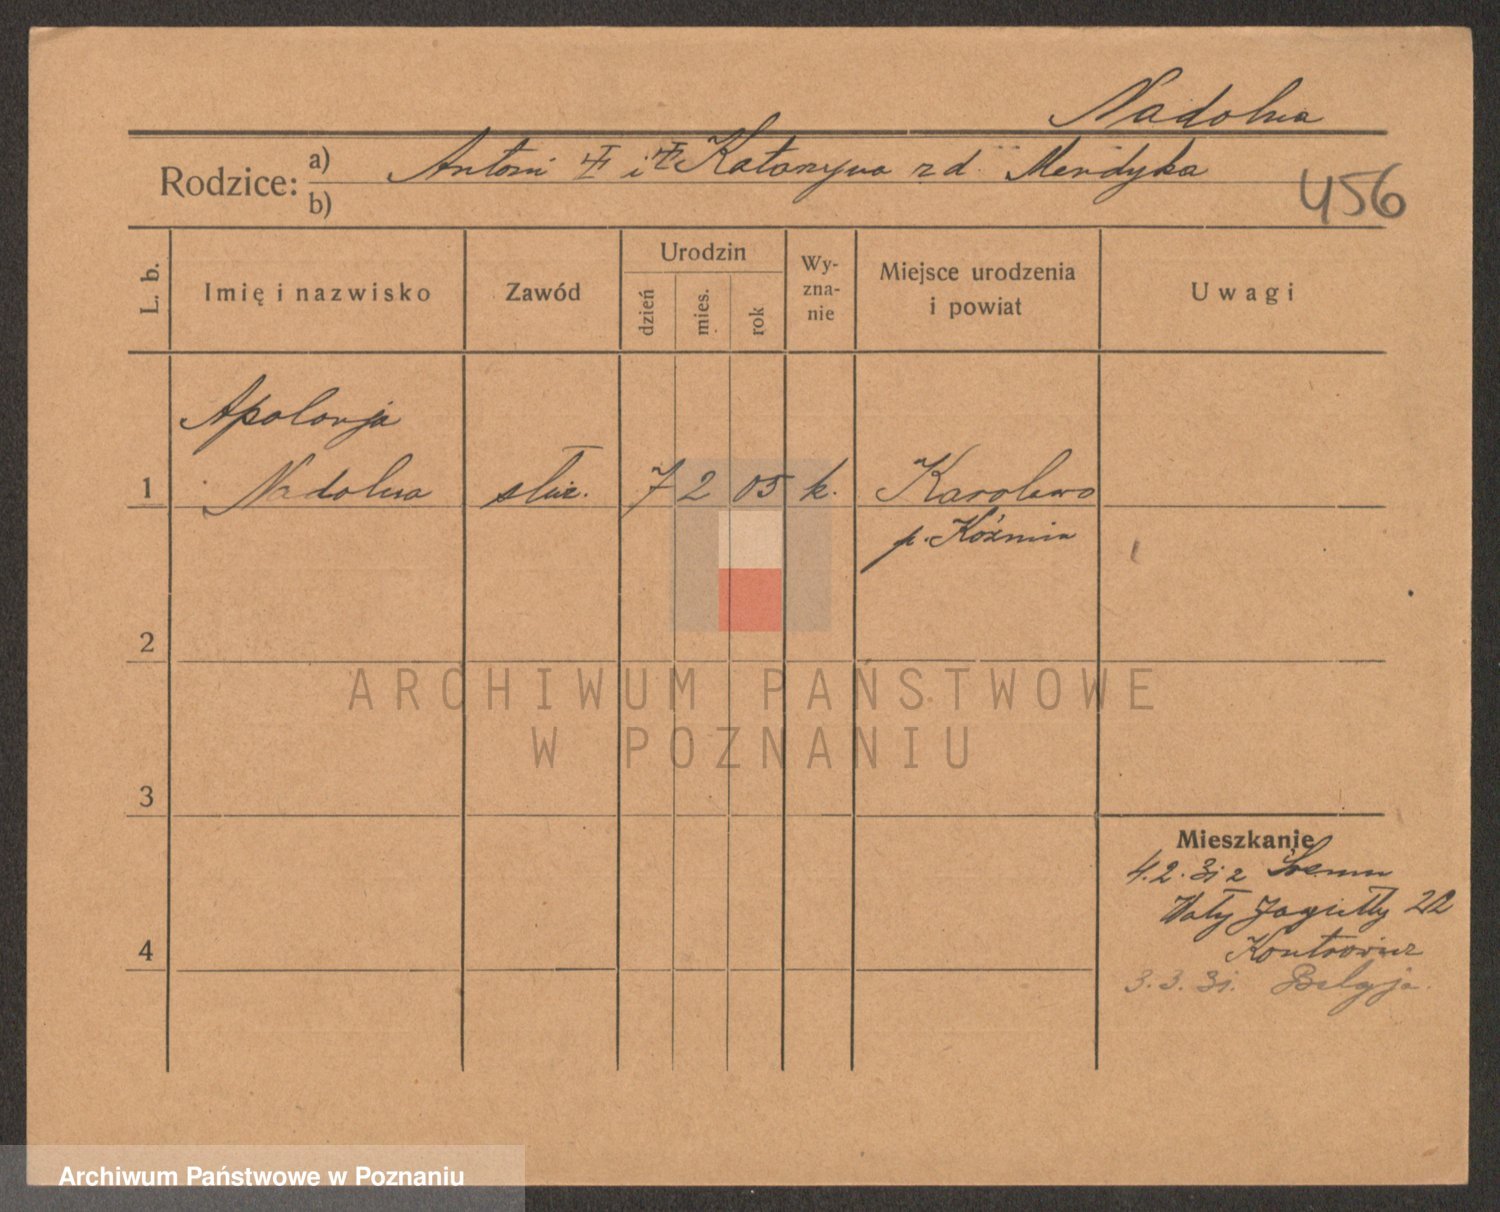 Nadolna
Rodzice: a) Antoni i Katarzyna z d. Merdyka
b)
456
L. b.
Imię i nazwisko
Zawód
Urodzin
dzień
mies.
rok
Wy-
zna-
nie
Miejsce urodzenia
i powiat
Uwagi
Apolonja
1 Nadolna służ. 7 2 05 k. Karolewo
p. Koźmin
2
3
4
Mieszkanie
4.2.31 z Śremu
Wały Jagiełły 22
3.3.31. Belgja.
ARCHIWUM PAŃSTWOWE
W POZNANIU
Archiwum Państwowe w Poznaniu